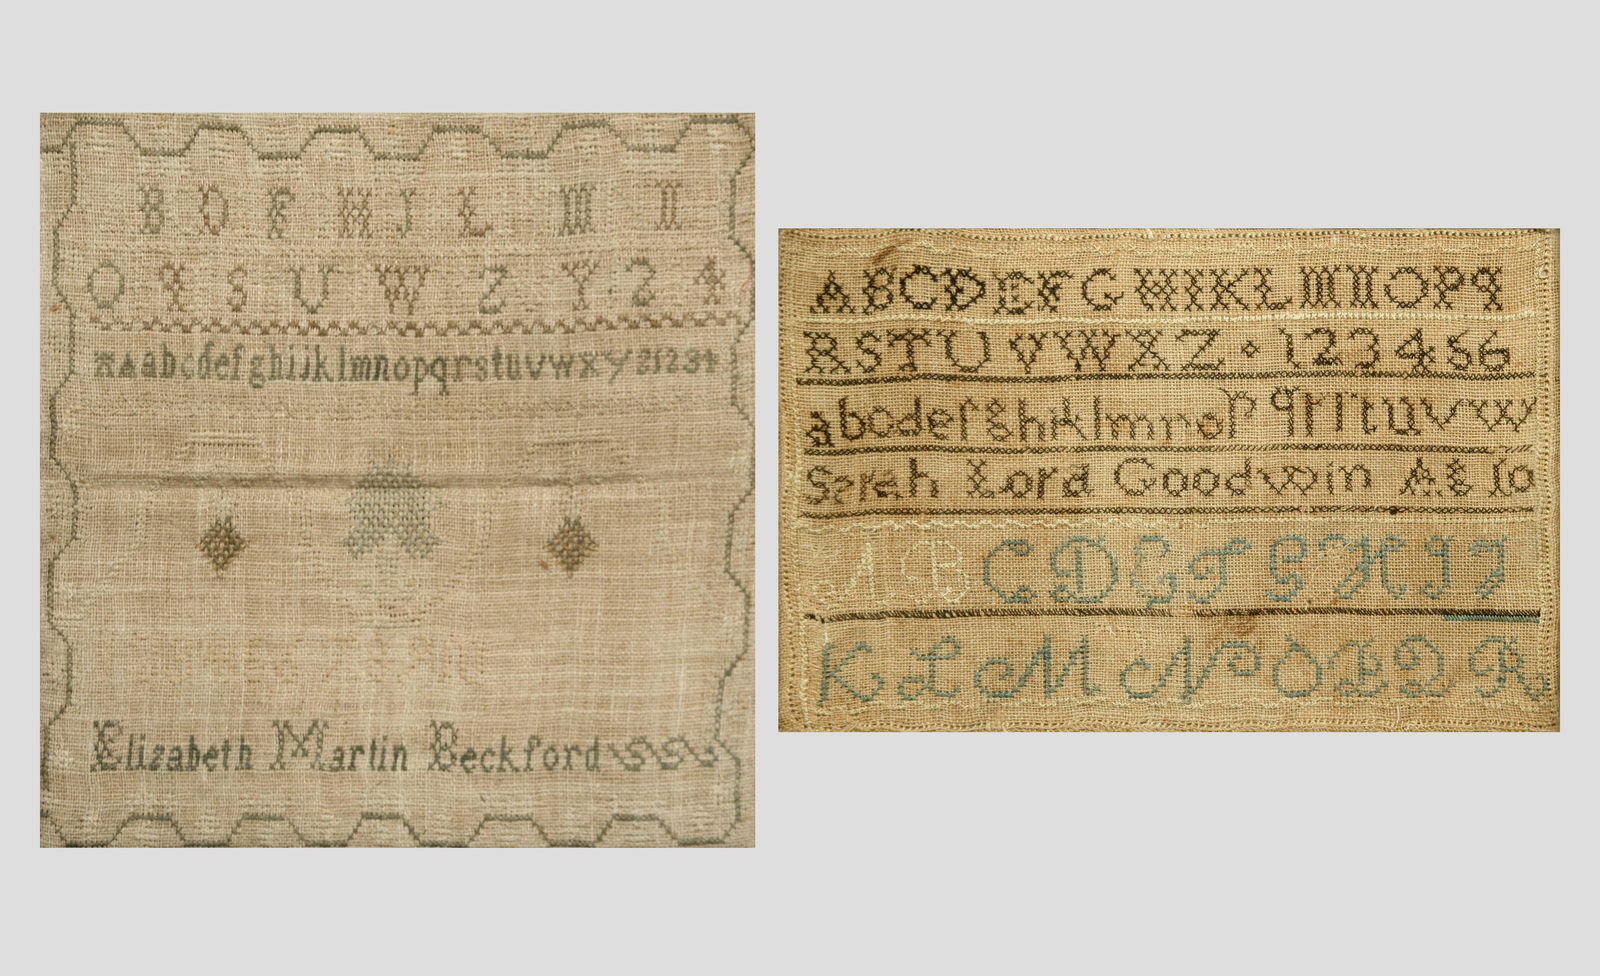 B D F H J L M N
O Q S U W Z Y 2 4
abcdefghijklmnopqrstuvwxyz1234
Elizabeth Martin Beckford
ABCDEFGHIKLMNOPQ
RSTUVWXZ 123456
abcdefghiklmnop qrſtuvw
Sarah Lord Goodwin AE 10
A B C D E F G H I J
K L M N O P Q R